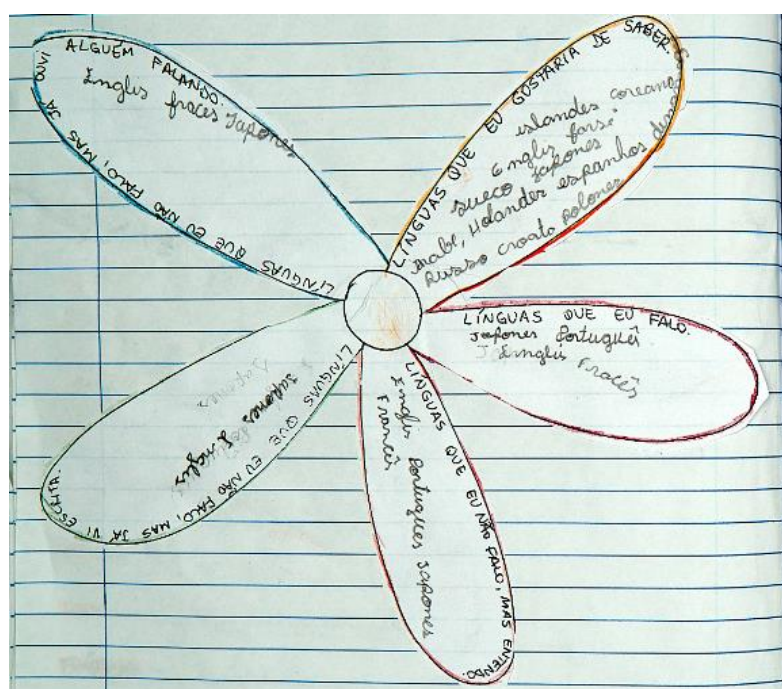 LÍNGUAS QUE EU NÃO FALO, MAS JÁ OUVI ALGUÉM FALANDO.
Inglis fraces Japones
LÍNGUAS QUE EU GOSTARIA DE SABER.
islandes coreano
Inglis farsi
sueco Japones
Holander espanhos
Russo croata polones
LÍNGUAS QUE EU FALO.
Japones Portuguêi
Inglis Fracês
LÍNGUAS QUE EU NÃO FALO, MAS ENTENDO.
Inglis Portugues Japones
Francês
LÍNGUAS QUE EU NÃO FALO, MAS JÁ VI ESCRITA.
Japones
Inglis